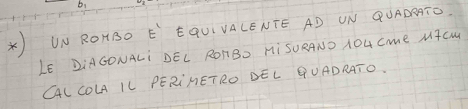 b₁
*) UN ROMBO E' EQUIVALENTE AD UN QUADRATO.
LE DIAGONALI DEL ROMBO MISURANO 104 cm e 117 cm
CALCOLA IL PERIMETRO DEL QUADRATO.